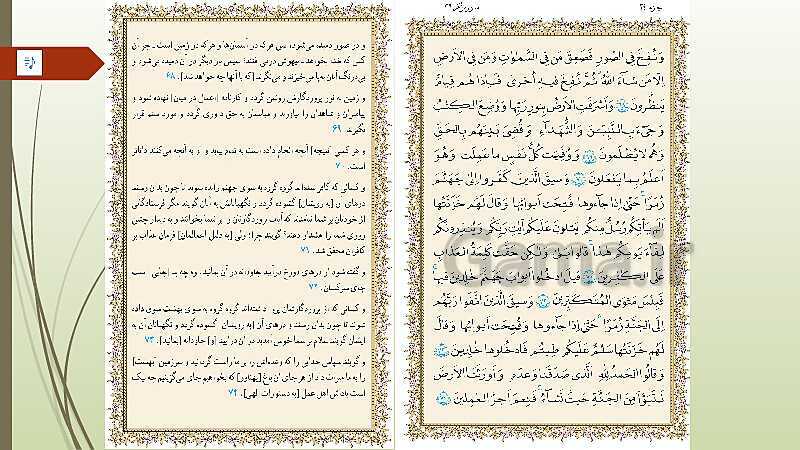 جزء ۲۴
سوره زمر ۳۹
وَنُفِخَ فِي الصُّورِ فَصَعِقَ مَن فِي السَّمٰوٰتِ وَمَن فِي الْأَرْضِ
إِلَّا مَن شَاءَ اللَّهُ ثُمَّ نُفِخَ فِيهِ أُخْرىٰ فَإِذَا هُمْ قِيَامٌ
يَنظُرُونَ ۶۸ وَأَشْرَقَتِ الْأَرْضُ بِنُورِ رَبِّهَا وَوُضِعَ الْكِتٰبُ
وَجِايءَ بِالنَّبِيِّينَ وَالشُّهَدَاءِ وَقُضِيَ بَيْنَهُم بِالْحَقِّ
وَهُمْ لَا يُظْلَمُونَ ۶۹ وَوُفِّيَتْ كُلُّ نَفْسٍ مَا عَمِلَتْ وَهُوَ
أَعْلَمُ بِمَا يَفْعَلُونَ ۷۰ وَسِيقَ الَّذِينَ كَفَرُوا إِلىٰ جَهَنَّمَ
زُمَرًا حَتّىٰ إِذَا جَاءُوهَا فُتِحَتْ أَبْوَابُهَا وَقَالَ لَهُمْ خَزَنَتُهَا
أَلَمْ يَأْتِكُمْ رُسُلٌ مِنكُمْ يَتْلُونَ عَلَيْكُمْ آيَاتِ رَبِّكُمْ وَيُنذِرُونَكُمْ
لِقَاءَ يَوْمِكُمْ هٰذَا قَالُوا بَلىٰ وَلٰكِنْ حَقَّتْ كَلِمَةُ الْعَذَابِ
عَلَى الْكَافِرِينَ ۷۱ قِيلَ ادْخُلُوا أَبْوَابَ جَهَنَّمَ خَالِدِينَ فِيهَا
فَبِئْسَ مَثْوَى الْمُتَكَبِّرِينَ ۷۲ وَسِيقَ الَّذِينَ اتَّقَوْا رَبَّهُمْ
إِلَى الْجَنَّةِ زُمَرًا حَتّىٰ إِذَا جَاءُوهَا وَفُتِحَتْ أَبْوَابُهَا وَقَالَ
لَهُمْ خَزَنَتُهَا سَلٰمٌ عَلَيْكُمْ طِبْتُمْ فَادْخُلُوهَا خَالِدِينَ ۷۳
وَقَالُوا الْحَمْدُ لِلَّهِ الَّذِي صَدَقَنَا وَعْدَهُ وَأَوْرَثَنَا الْأَرْضَ
نَتَبَوَّأُ مِنَ الْجَنَّةِ حَيْثُ نَشَاءُ فَنِعْمَ أَجْرُ الْعٰمِلِينَ ۷۴
و در صور دمیده می‌شود، پس هر که در آسمان‌ها و هر که در زمین است ـ جز آن
کس که خدا خواهد ـ بیهوش درمی‌افتد؛ سپس بار دیگر در آن دمیده می‌شود و
بی‌درنگ آنان به پا می‌خیزند و می‌نگرند [که با آنها چه خواهد شد]. ۶۸
و زمین به نور پروردگارش روشن گردد و کارنامه [اعمال در میان] نهاده شود و
پیامبران و شاهدان را بیاورند و میانشان به حق داوری گردد و مورد ستم قرار
نگیرند. ۶۹
و هر کسی [نتیجه] آنچه انجام داده است به تمام بیابد و او به آنچه می‌کنند داناتر
است. ۷۰
و کسانی که کافر شده‌اند گروه گروه به سوی جهنم رانده شوند تا چون بدان رسند
درهای آن [به رویشان] گشوده گردد و نگهبانانش به آنان گویند مگر فرستادگانی
از خودتان بر شما نیامدند که آیات پروردگارتان را بر شما بخوانند و به دیدار چنین
روزی شما را هشدار دهند؟ گویند چرا؛ ولی [به دلیل اعمالمان] فرمان عذاب بر
کافران محقق شد. ۷۱
و گفته شود از درهای دوزخ درآیید جاودانه در آن بمانید. وه چه بد [جایی] است
جای سرکشان. ۷۲
و کسانی که از پروردگارشان پروا داشته‌اند گروه گروه به سوی بهشت سوق داده
شوند تا چون بدان رسند و درهای آن [به رویشان] گشوده گردد و نگهبانان آن به
ایشان گویند سلام بر شما خوش آمدید در آن درآیید [و] جاودانه [بمانید]. ۷۳
و گویند سپاس خدایی را که وعده‌اش را بر ما راست گردانید و سرزمین [بهشت]
را به ما میراث داد از هر جای آن باغ [پهناور] که بخواهیم جای می‌گزینیم چه نیک
است پاداش اهل عمل [به دستورات الهی]. ۷۴
Gama.ir